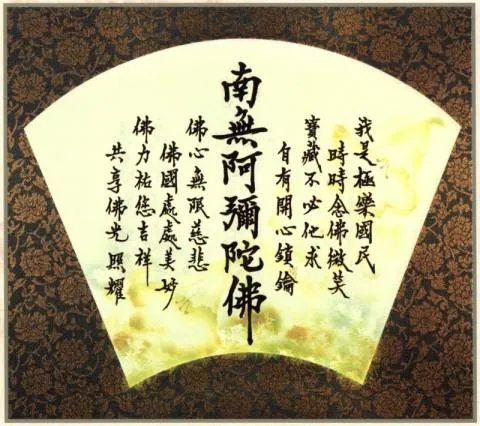 我是極樂國民
時時念佛微笑
寶藏不必他求
自有開心鎖鑰
南無阿彌陀佛
佛心無限慈悲
佛國處處美妙
佛力祐您吉祥
共享佛光照耀